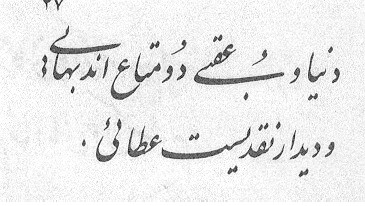 ۲۷
دنیا و عقبے دُو متاع اند بہائے
و دیدار نقدیست عطائی .